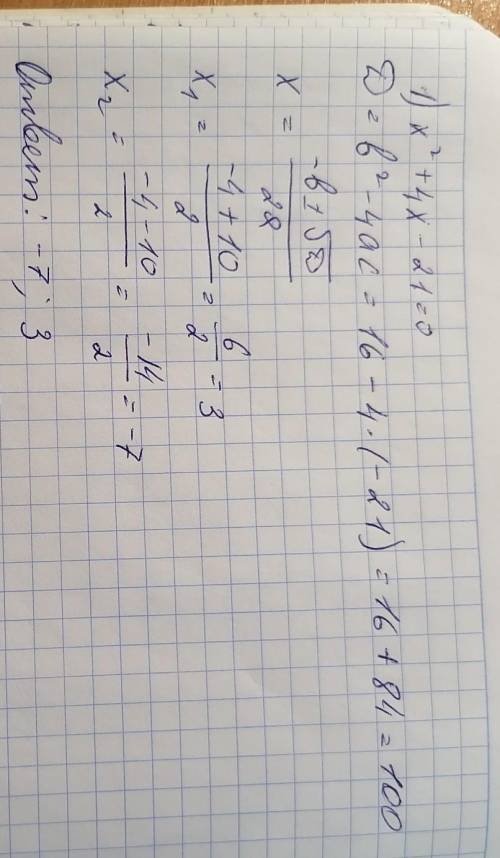 1) x² + 4x - 21 = 0
D = b² - 4ac = 16 - 4·(-21) = 16 + 84 = 100
x = (-b ± √D) / 2a
x₁ = (-4 + 10) / 2 = 6/2 = 3
x₂ = (-4 - 10) / 2 = -14/2 = -7
Ответ: -7; 3